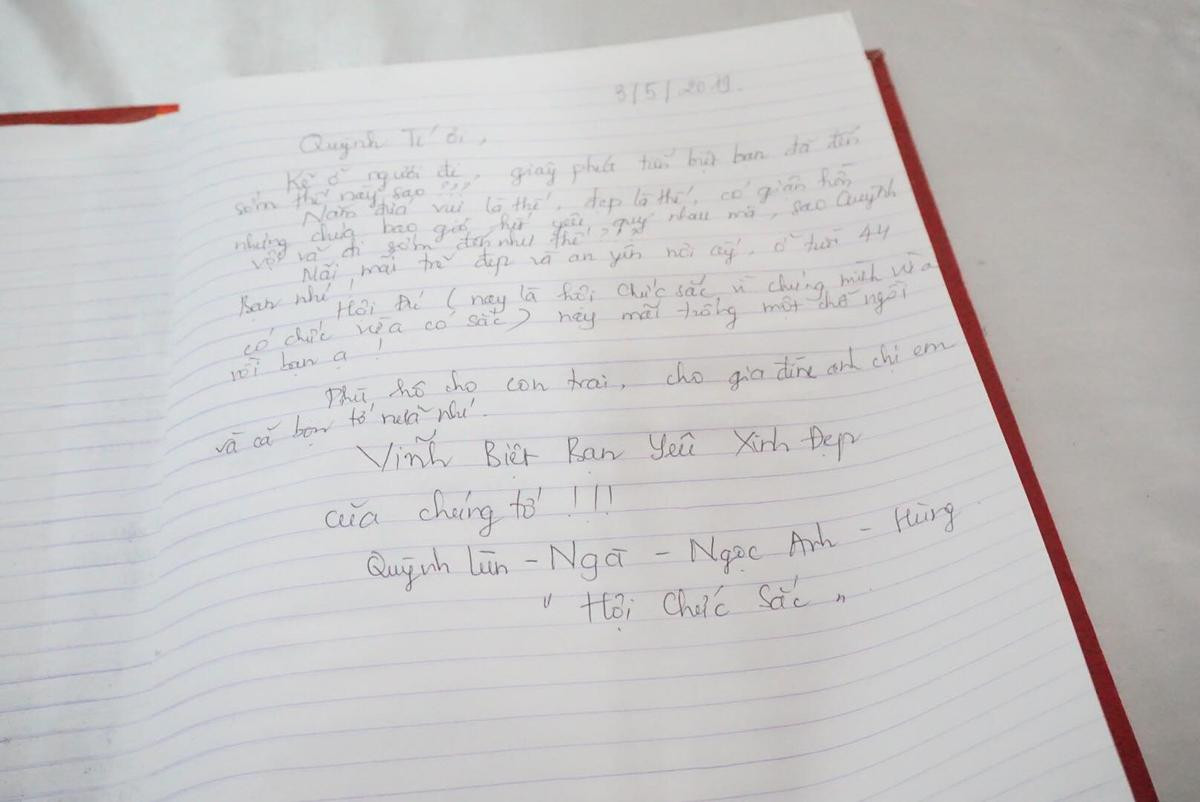 3/5/2019.
Quỳnh Tí ơi,
Kẻ ở người đi, giây phút tiễn biệt bạn đã đến
sớm thế này sao???
Năm đứa vui là thế, đẹp là thế, có giận hờn
nhưng chưa bao giờ hết yêu quý nhau mà, sao Quỳnh
vội vã đi sớm đến như thế?
Mãi mãi trẻ đẹp và an yên nơi ấy, ở tuổi 44
Bạn nhé!
Hội Đú (nay là hội Chức sắc vì chúng mình vừa
có chức vừa có sắc) này mãi trống một chỗ ngồi
rồi bạn ạ!
Phù hộ cho con trai, cho gia đình anh chị em
và cả bọn tớ nữa nhé.
Vĩnh Biệt Bạn Yêu Xinh Đẹp
của chúng tớ!!!
Quỳnh lùn - Ngà - Ngọc Anh - Hùng
"Hội Chức Sắc"